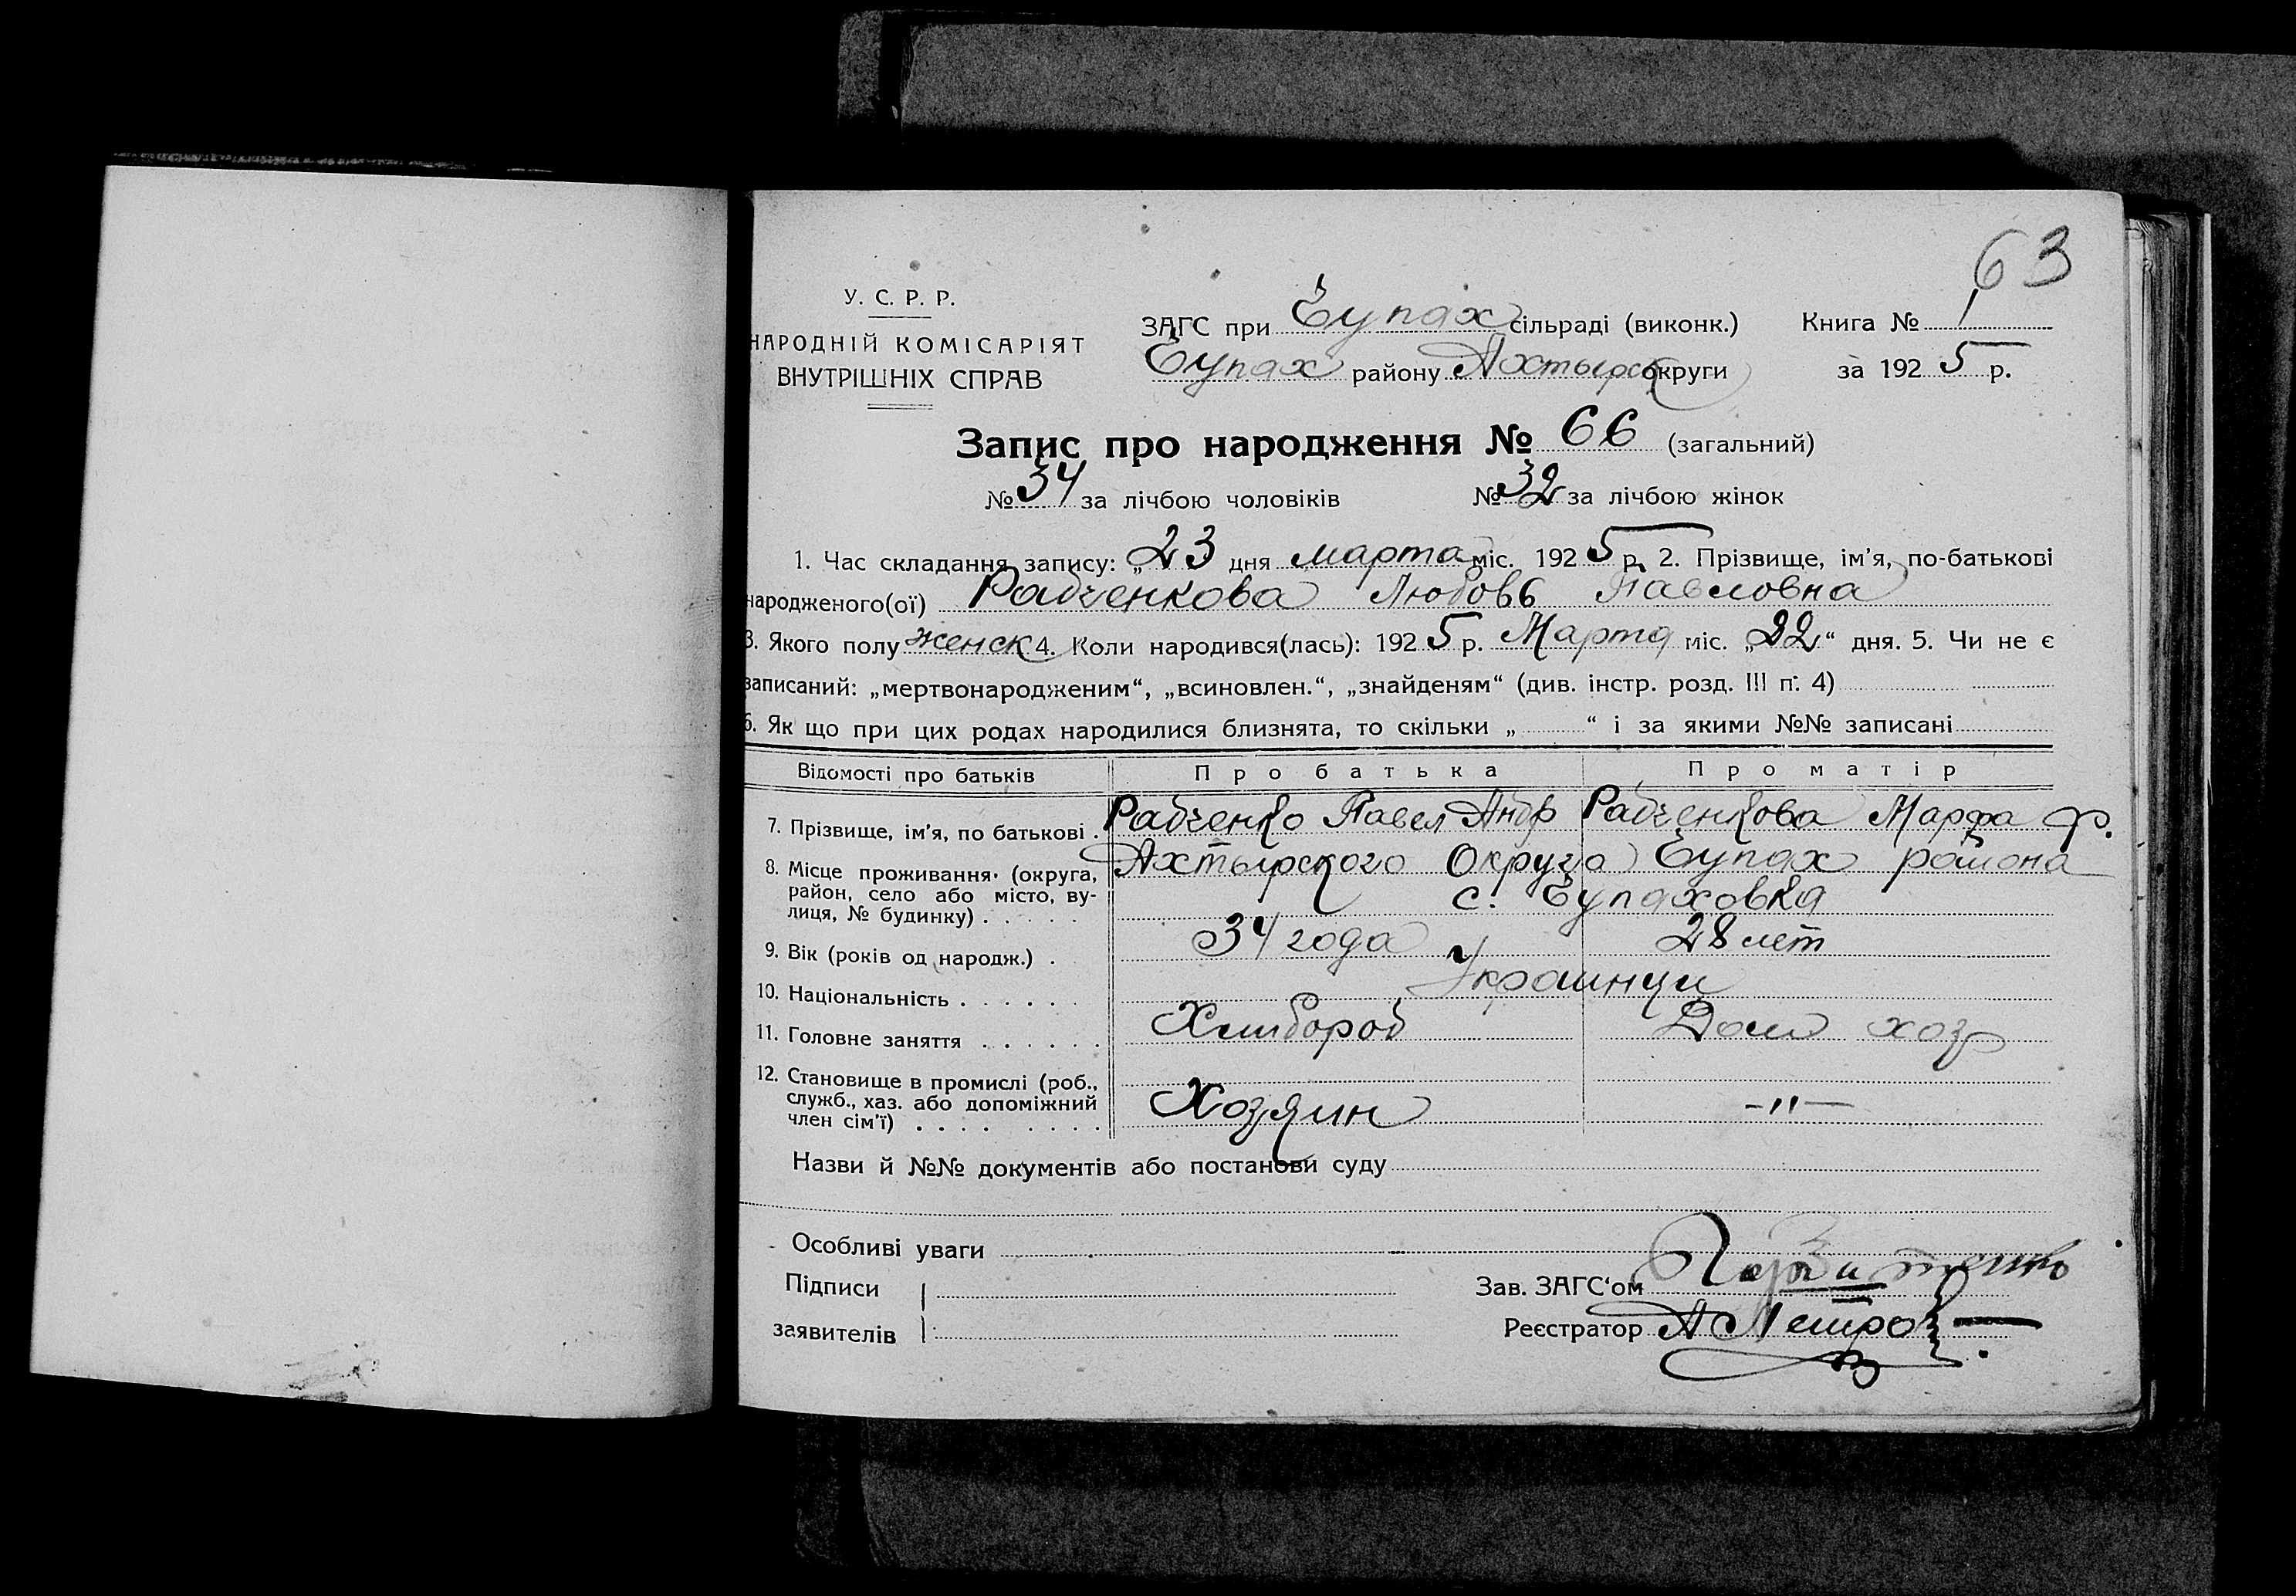 63
У. С. Р. Р.
НАРОДНІЙ КОМІСАРІЯТ
ВНУТРІШНІХ СПРАВ
ЗАГС при Чупах сільраді (виконк.) Книга № 1
Чупах району Ахтырск округи за 1925 р.
Запис про народження № 66 (загальний)
№ 34 за лічбою чоловіків № 32 за лічбою жінок
1. Час складання запису: „23 дня марта міс. 1925 р. 2. Прізвище, ім'я, по-батькові
народженого(ої) Рабченкова Любовь Павловна
3. Якого полу женск 4. Коли народився(лась): 1925 р. Марта міс. „22“ дня. 5. Чи не є
записаний: „мертвонародженим“, „всиновлен.“, „знайденям“ (див. інстр. розд. III п. 4)
6. Як що при цих родах народилися близнята, то скільки „ “ і за якими №№ записані
Відомості про батьків Про батька Про матір
7. Прізвище, ім'я, по батькові . Рабченко Павел Андр Рабченкова Марфа Ф.
8. Місце проживання (округа, район, село або місто, ву-лиця, № будинку) . . . . . Ахтырского Округа Чупах района
с. Чупаховка
9. Вік (років од народж.) . 34 года 28 лет
10. Національність . . . . . . Украинци
11. Головне заняття . . . . . . Хлибороб Дом хоз
12. Становище в промислі (роб., служб., хаз. або допоміжний член сім'ї) . . . . . . . . Хозяин -"-
Назви й №№ документів або постанови суду
Особливі уваги
Підписи
заявителів
Зав. ЗАГС‘ом
Реєстратор А